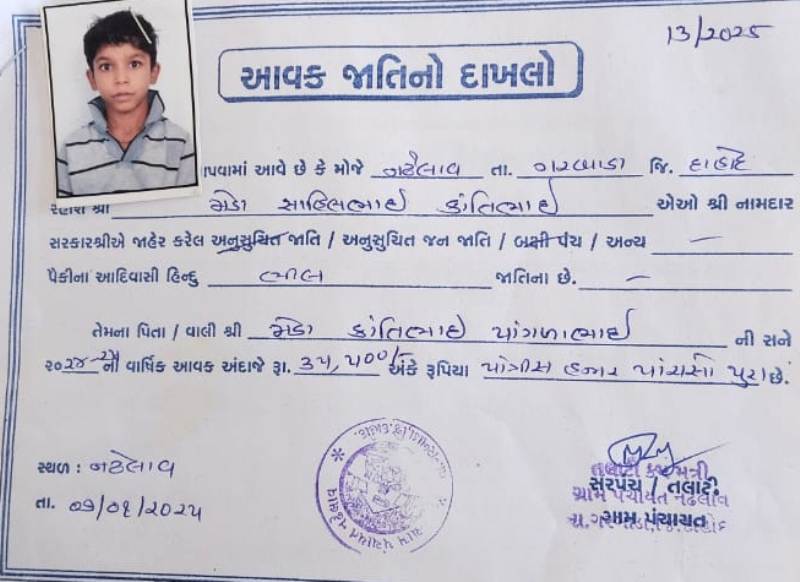 13/2025
આવક જાતિનો દાખલો
પવામાં આવે છે કે મોજે નઢેલાવ તા. ગરબાડા જિ. દાહોદ
શ્રી મેડા સાહિલભાઈ કાંતિભાઈ એઓ શ્રી નામદાર
સરકારશ્રીએ જાહેર કરેલ અનુસુચિત જાતિ / અનુસુચિત જન જાતિ / બક્ષી પંચ / અન્ય —
પૈકીના આદિવાસી હિન્દુ ભીલ જાતિના છે. —
તેમના પિતા / વાલી શ્રી મેડા કાંતિભાઈ પાંગળાભાઈ ની સને
૨૦૨૪-૨૫ની વાર્ષિક આવક અંદાજે રૂા. ૩૫,૫૦૦/- અંકે રૂપિયા પાંત્રીસ હજાર પાંચસો પુરા છે.
સ્થળ : નઢેલાવ
તા. ૦૭/૦૧/૨૦૨૫
તલાટી કમ મંત્રી
સરપંચ / તલાટી
ગ્રામ પંચાયત નઢેલાવ
ગ્રામ પંચાયત